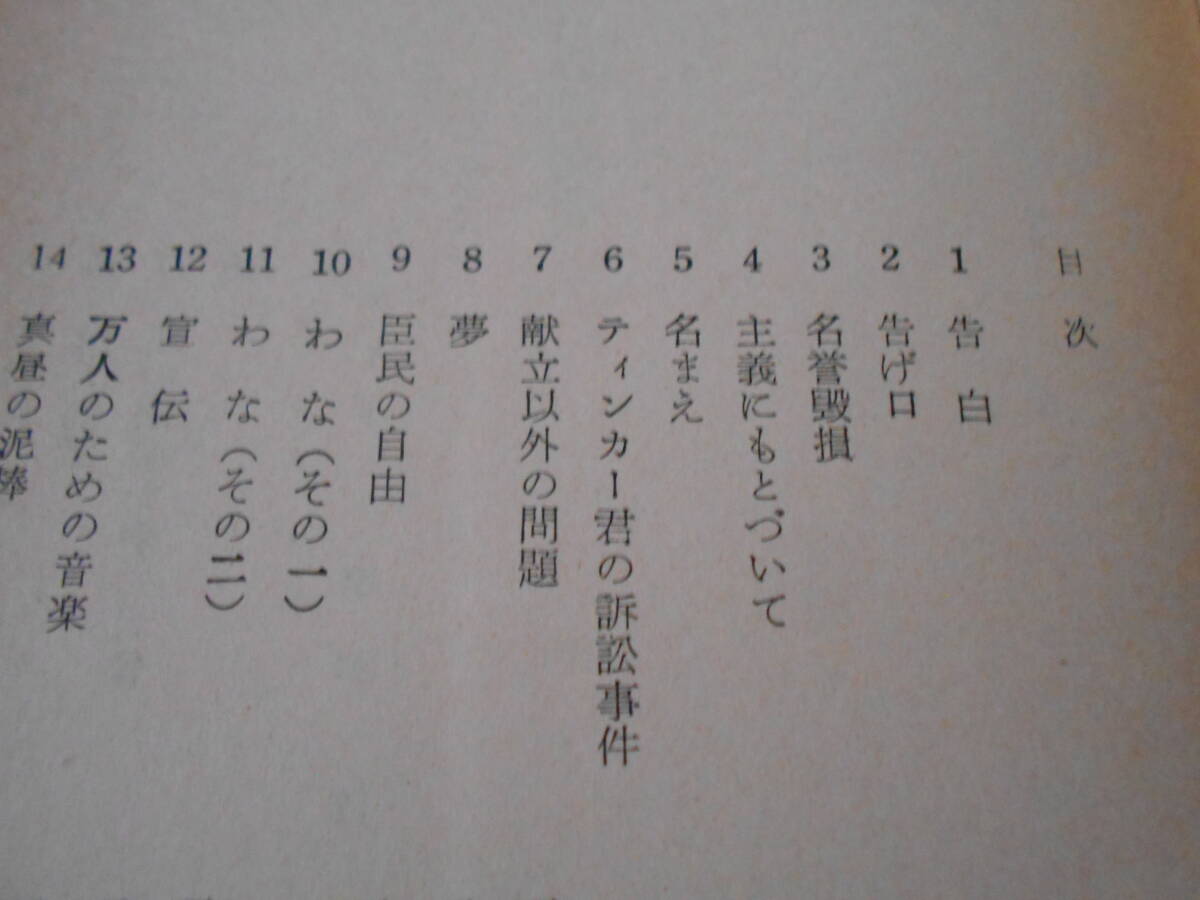 目次
1 告白
2 告げ口
3 名誉毀損
4 主義にもとづいて
5 名まえ
6 ティンカー君の訴訟事件
7 献立以外の問題
8 夢
9 臣民の自由
10 わな（その一）
11 わな（その二）
12 宣伝
13 万人のための音楽
14 真昼の泥棒